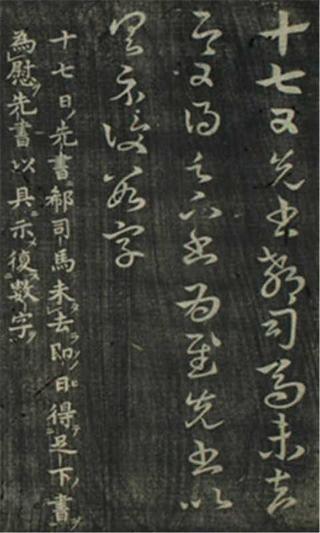 十七日先書郗司馬未去
即日得足下書為慰先書以
具示復數字
十七日先書郗司馬未去即日得足下書
為慰先書以具示復數字